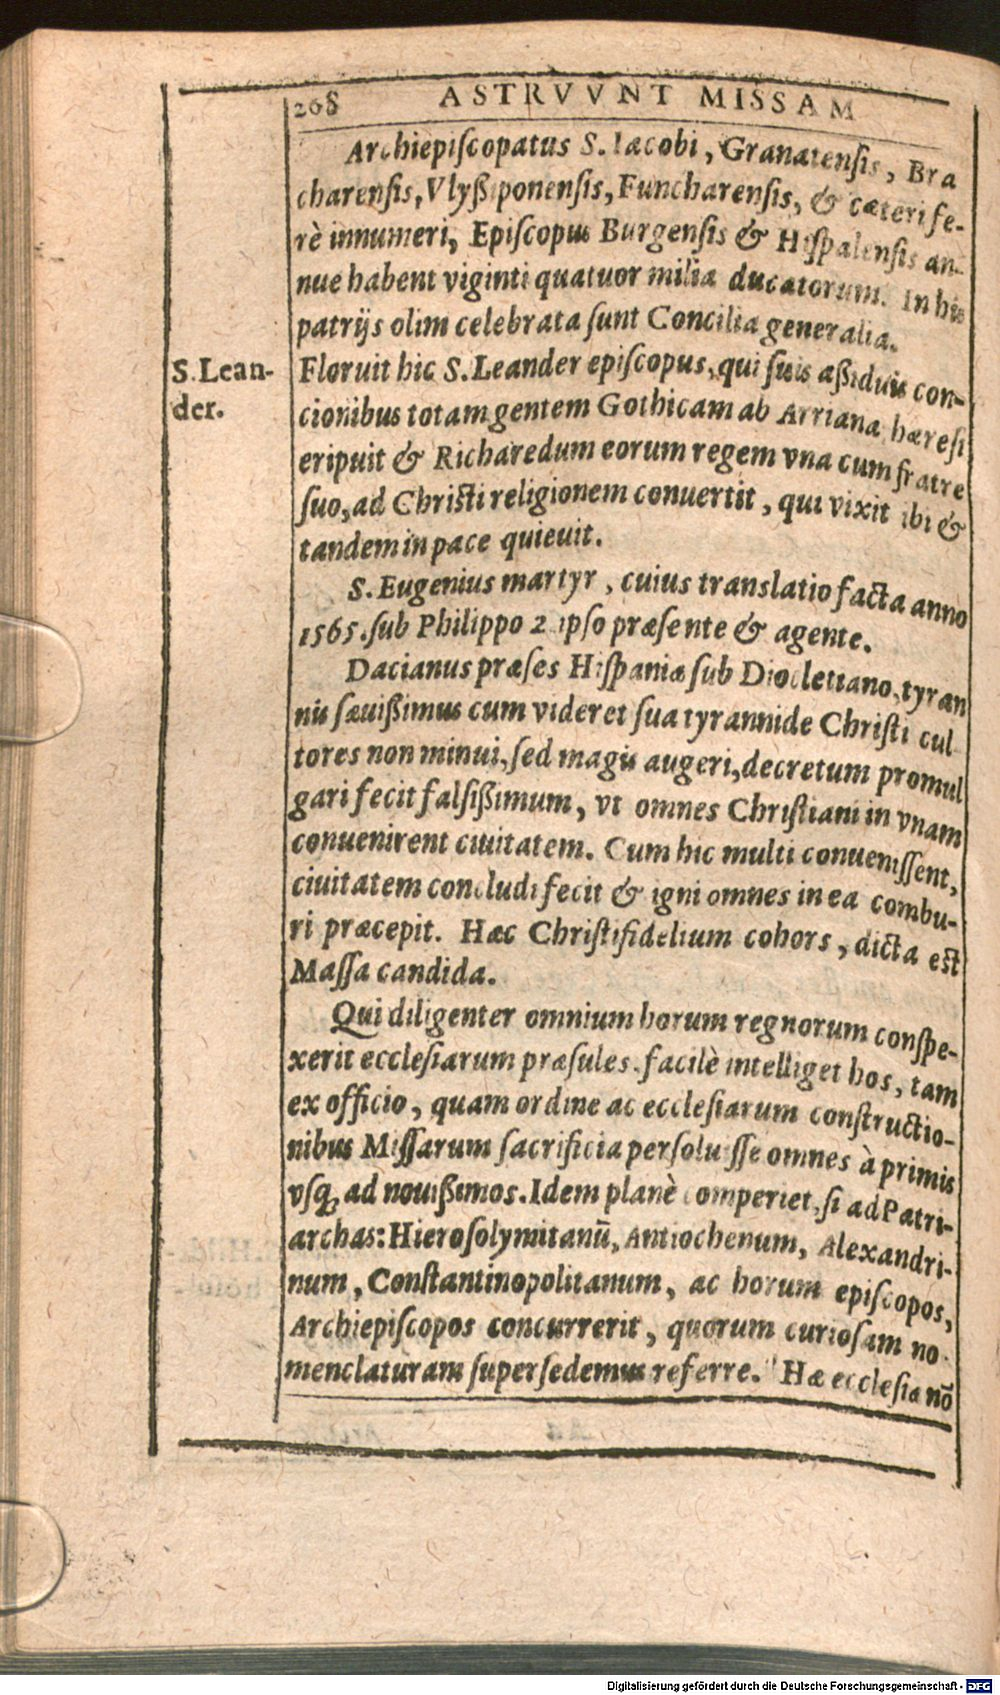 208 ASTRVVNT MISSAM
Archiepiſcopatus S. Iacobi, Granatenſis, Bra
charenſis, Vlyßiponenſis, Funcharenſis, & cæteri fe-
rè innumeri, Epiſcopus Burgenſis & Hiſpalenſis an-
nue habent viginti quatuor milia ducatorum. In his
patrijs olim celebrata ſunt Concilia generalia.
S. Lean-
der.
Floruit hic S. Leander epiſcopus, qui ſuis aßiduis con-
cionibus totam gentem Gothicam ab Arriana hæreſi
eripuit & Richaredum eorum regem vna cum fratre
ſuo, ad Chriſti religionem conuertit, qui vixit ibi &
tandem in pace quieuit.
S. Eugenius martyr, cuius translatio facta anno
1565. ſub Philippo 2 ipſo præſente & agente.
Dacianus præſes Hiſpaniæ ſub Diocletiano, tyran
nus ſæuißimus cum videret ſua tyrannide Chriſti cul
tores non minui, ſed magis augeri, decretum promul
gari fecit falſißimum, vt omnes Chriſtiani in vnam
conuenirent ciuitatem. Cum hic multi conueniſſent,
ciuitatem concludi fecit & igni omnes in ea combu-
ri præcepit. Hæc Chriſtifidelium cohors, dicta eſt
Maſſa candida.
Qui diligenter omnium horum regnorum conſpe-
xerit eccleſiarum præſules. facilè intelliget hos, tam
ex officio, quam ordine ac eccleſiarum conſtructio-
nibus Miſſarum ſacrificia perſoluiſſe omnes à primis
vſq; ad nouißimos. Idem planè comperiet, ſi ad Patri-
archas: Hieroſolymitanū, Antiochenum, Alexandri-
num, Conſtantinopolitanum, ac horum epiſcopos,
Archiepiſcopos concurrerit, quorum curioſam no
menclaturam ſuperſedemus referre. Hæ eccleſia nō
Digitalisierung gefördert durch die Deutsche Forschungsgemeinschaft - DFG